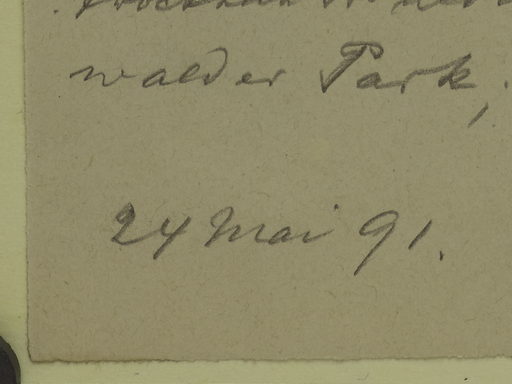 walder Park,
24 Mai 91.